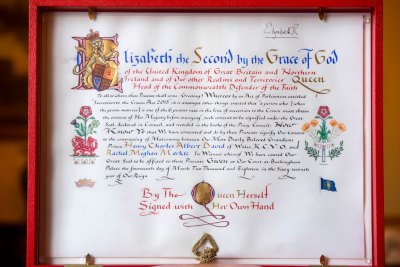 Elizabeth R
Elizabeth the Second by the Grace of God
of the United Kingdom of Great Britain and Northern
Ireland and of Our other Realms and Territories Queen
Head of the Commonwealth Defender of the Faith
To all to whom these Presents shall come Greeting! Whereas by an Act of Parliament entituled
Succession to the Crown Act 2013 it is amongst other things enacted that "a person who (when
the person marries) is one of the 6 persons next in the line of succession to the Crown must obtain
the consent of Her Majesty before marrying" such consent to be signified under the Great
Seal, declared in Council and recorded in the books of the Privy Council. Now
Know Ye that We have consented and do by these Presents signify Our Consent
to the contracting of Matrimony between Our Most Dearly Beloved Grandson
Prince Henry Charles Albert David of Wales, K.C.V.O. and
Rachel Meghan Markle In Witness whereof We have caused Our
Great Seal to be affixed to these Presents Given at Our Court at Buckingham
Palace the fourteenth day of March Two Thousand and Eighteen in the Sixty-seventh
year of Our Reign
By The Queen Herself
Signed with Her Own Hand